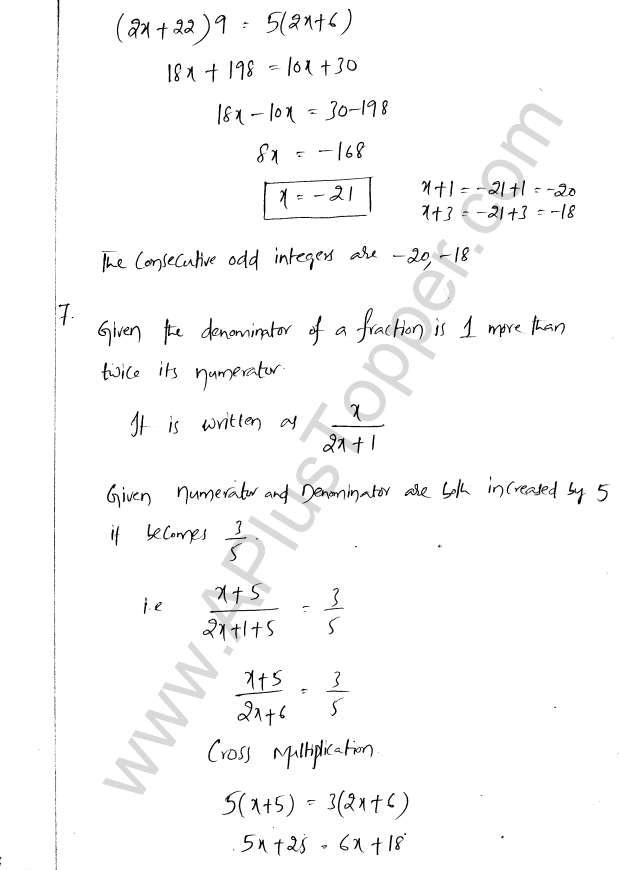 (2x+22)9 = 5(2x+6)
18x + 198 = 10x+30
18x - 10x = 30-198
8x = -168
x = -21
x+1 = -21+1 = -20
x+3 = -21+3 = -18
The consecutive odd integers are -20, -18
7.
Given the denominator of a fraction is 1 more than
twice its numerator.
It is written as x/(2x+1)
Given numerator and Denominator are both increased by 5
it becomes 3/5.
i.e (x+5)/(2x+1+5) = 3/5
(x+5)/(2x+6) = 3/5
Cross Multiplication
5(x+5) = 3(2x+6)
5x+25 = 6x+18
www.APlusTopper.com